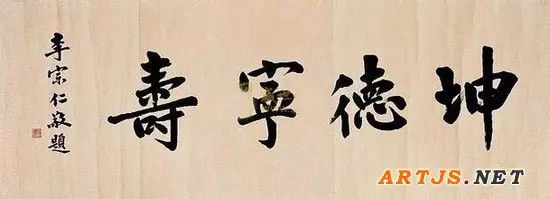 坤德寧壽
李宗仁敬題
ARTJS.NET